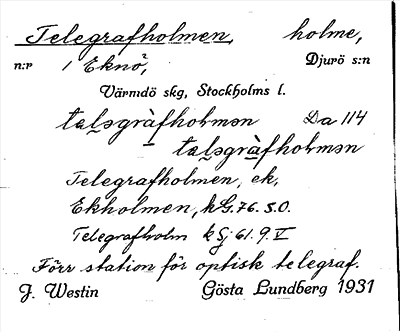 Telegrafholmen, holme,
n:r 1 Eknö², Djurö s:n
Värmdö skg, Stockholms l.
taləgràfhoƚmən Da 114
taləgràfhoƚmən
Telegrafholmen, ek,
Ekholmen, kG.76.S.O.
Telegrafholm kSj 61.9.V
Förr station för optisk telegraf.
J. Westin Gösta Lundberg 1931